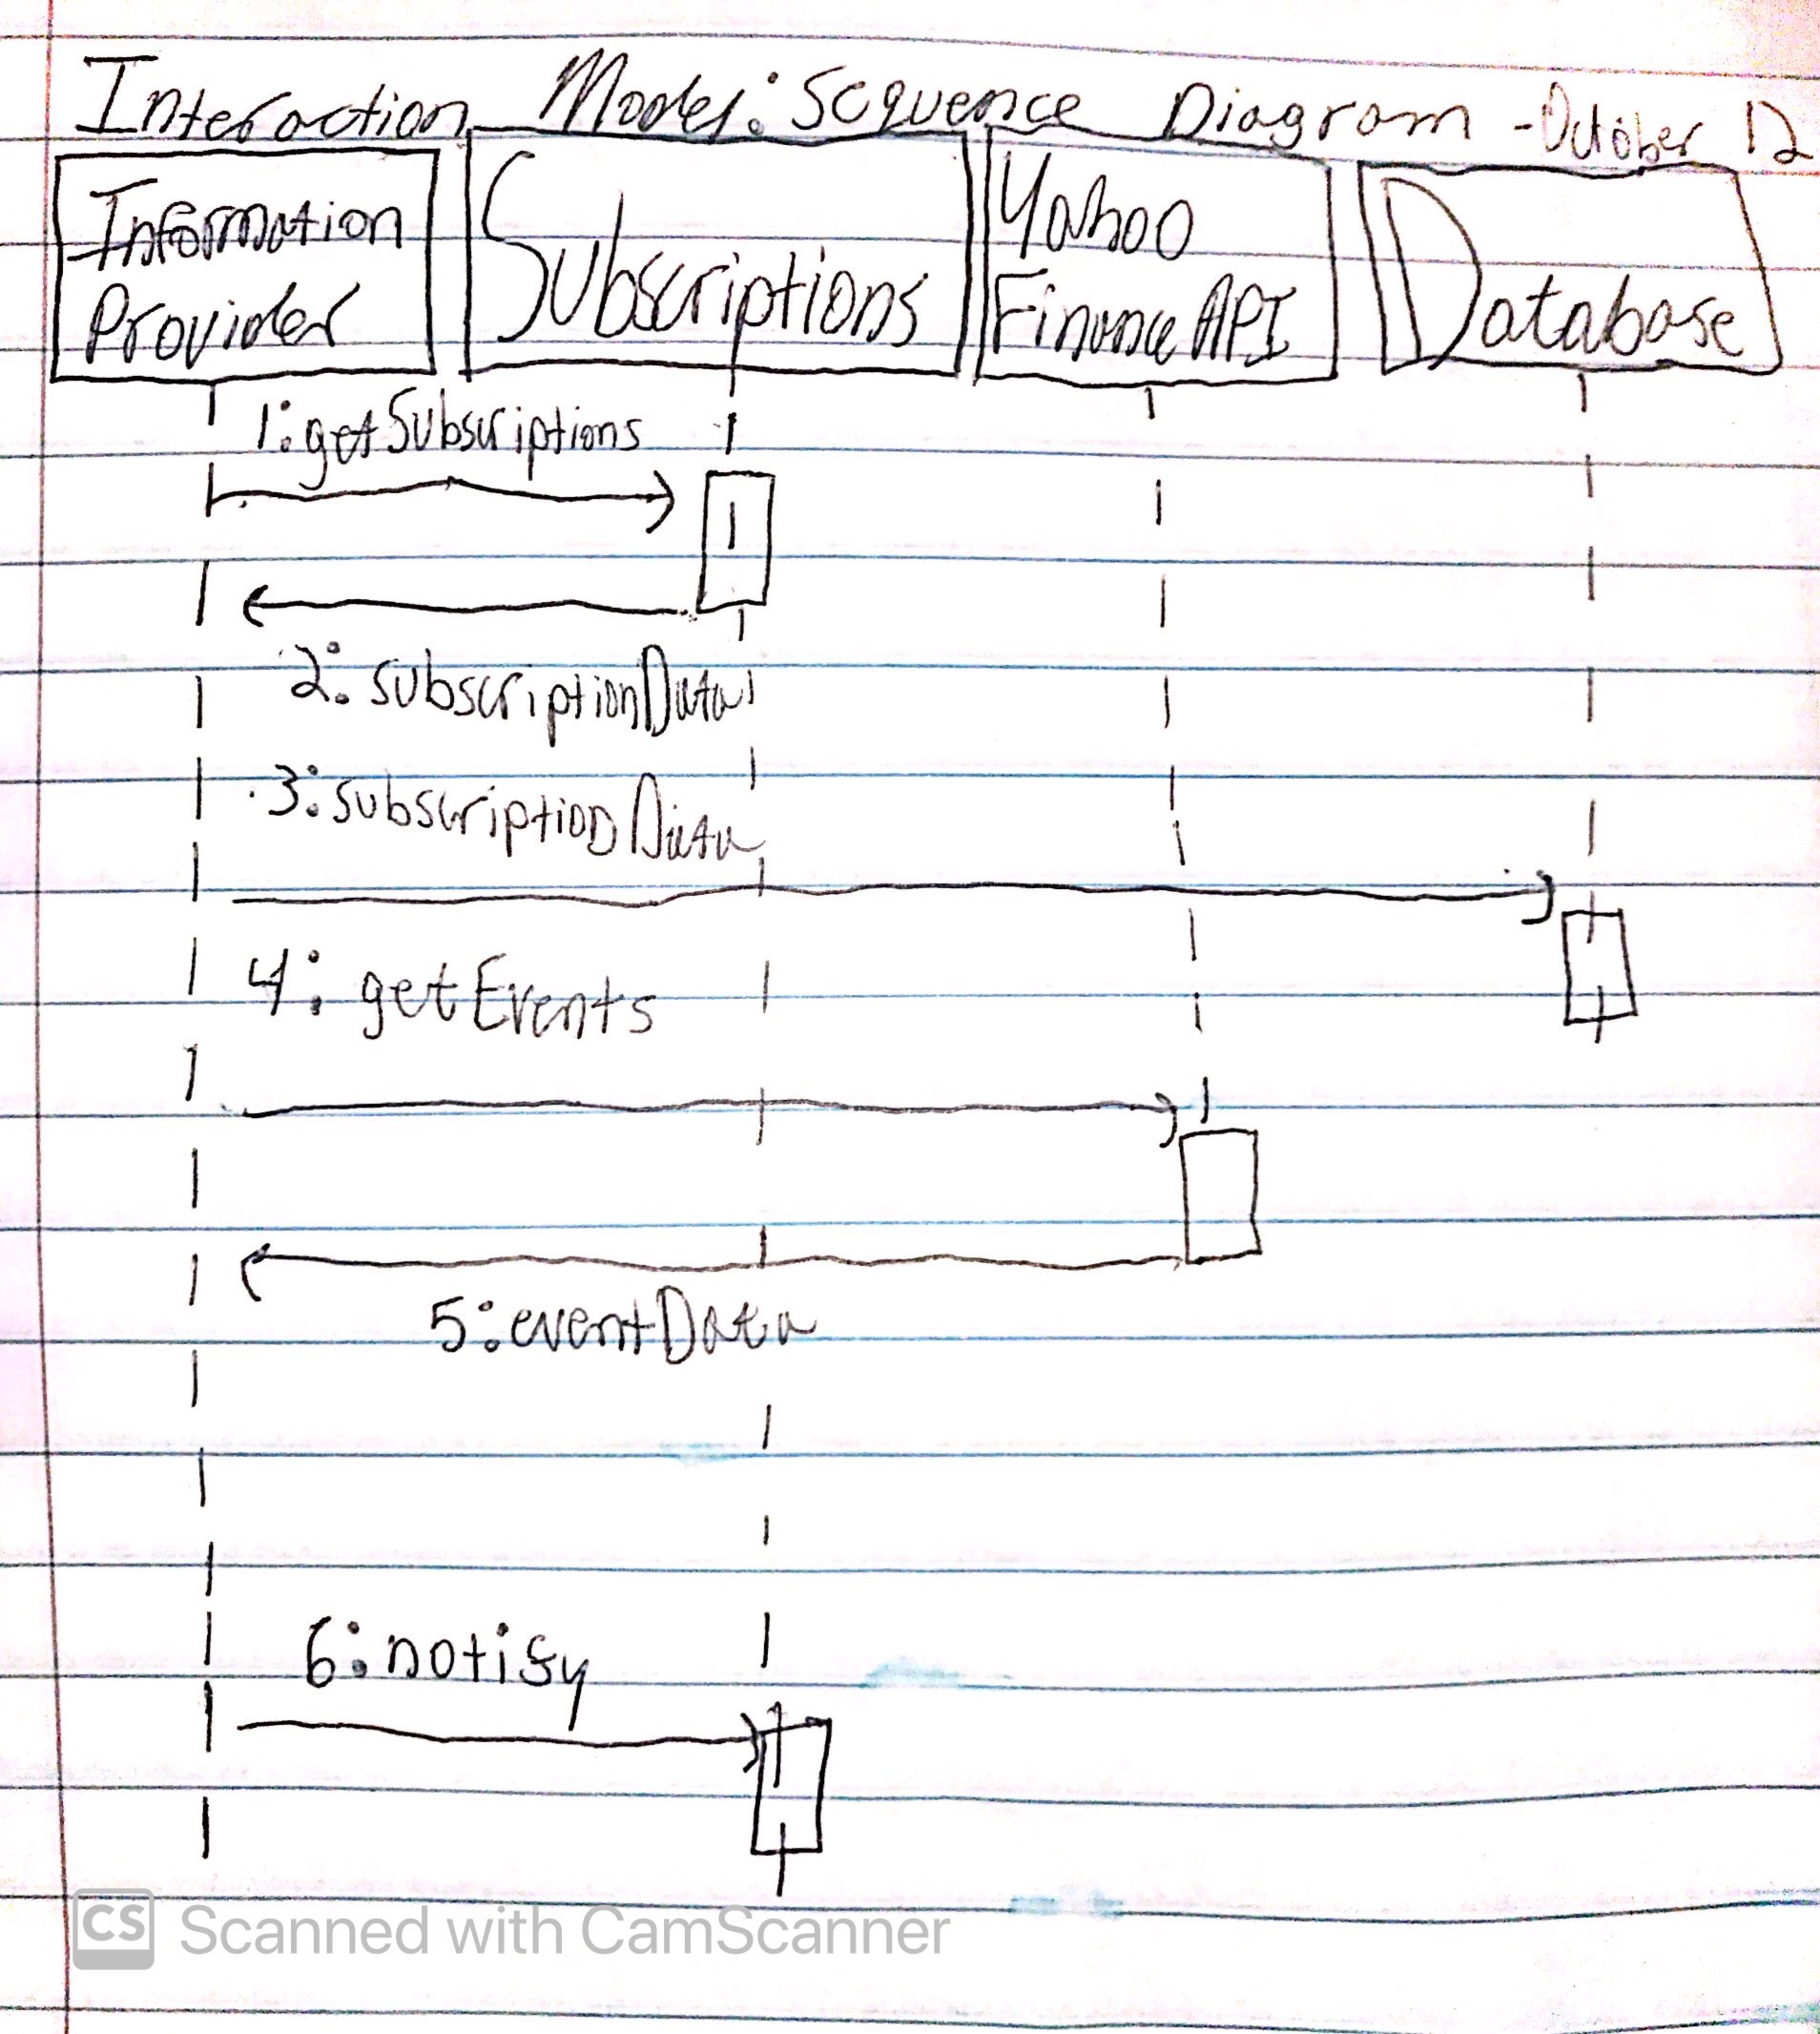 Interaction Model: Sequence Diagram - October 12
Information
Provider
Subscriptions
Yahoo
Finance API
Database
1: getSubscriptions
2: subscriptionData
3: subscriptionData
4: getEvents
5: eventData
6: notify
CS Scanned with CamScanner